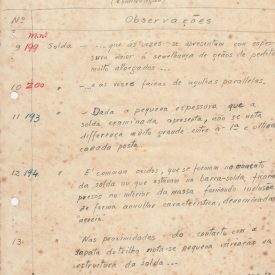 (continuação)
Nº Observações
mm
9 199 Solda - ... que às vezes se apresentam com espes-
sura maior à semelhança de grãos de
muito alongados ...
10 200 " - ... e às vezes faixas de agulhas paralelas.
11 193 " - Dada a pequena espessura que a
solda examinada apresenta, não se nota
diferença muito grande entre a 1ª e última
camada posta.
12 194 " - É comum óxidos, que se formam no momento
da solda ou que estavam na barra-solda, ficarem
presos no interior da massa formando inclusão
de forma annullar característica, denominadas
"areia".
13 - Nas proximidades do contacto com a
sapata do trilho nota-se pequena variação na
estructura da solda ...